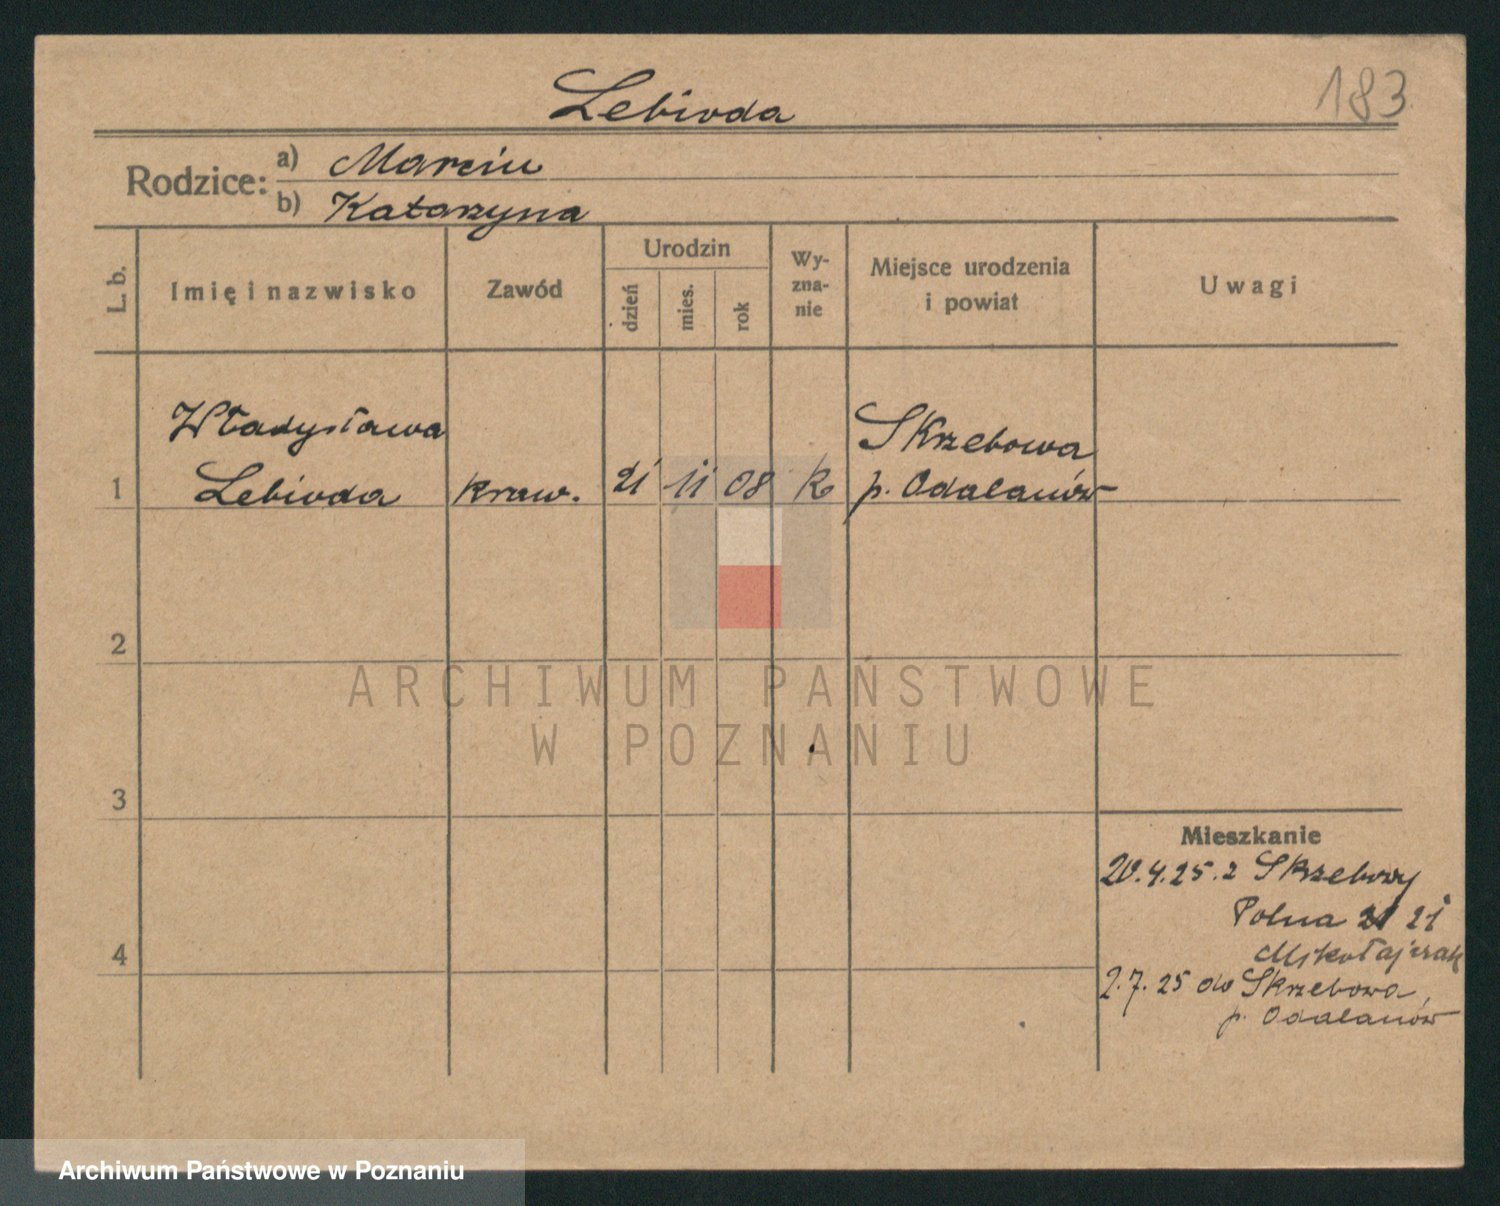 Lebioda
183
Rodzice: a) Marcin
b) Katarzyna
L. b. Imię i nazwisko Zawód Urodzin dzień mies. rok Wyznanie Miejsce urodzenia i powiat Uwagi
Władysława Skrzebowa
1 Lebioda kraw. 21 11 08 k p. Odalanów
2
3
Mieszkanie
20.4.25. z Skrzebowy
Polna 21
Mikołajczak
4
2.7.25 do Skrzebowa
p. Odalanów
ARCHIWUM PAŃSTWOWE
W POZNANIU
Archiwum Państwowe w Poznaniu